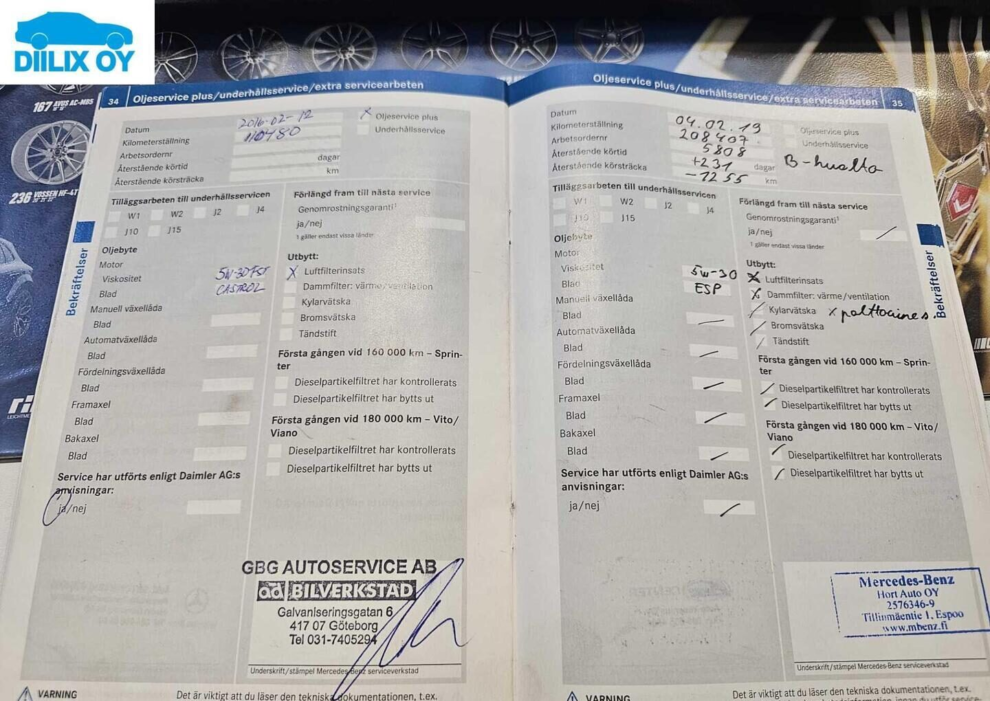 DIILIX OY
167 AVUS AC-MB5
236 VOSSEN HF-4T
34 Oljeservice plus/underhållsservice/extra servicearbeten
Datum 2016-02-12 X Oljeservice plus
Kilometerställning 110480 Underhållsservice
Arbetsordernr
Återstående körtid dagar
Återstående körsträcka km
Tilläggsarbeten till underhållsservicen
W1 W2 J2 J4
J10 J15
Oljebyte
Motor
Viskositet 5W-30 FST
Blad CASTROL
Manuell växellåda
Blad
Automatväxellåda
Blad
Fördelningsväxellåda
Blad
Framaxel
Blad
Bakaxel
Blad
Service har utförts enligt Daimler AG:s
anvisningar:
ja/nej
Förlängd fram till nästa service
Genomrostningsgaranti¹
ja/nej
1 gäller endast vissa länder
Utbytt:
X Luftfilterinsats
Dammfilter: värme/ventilation
Kylarvätska
Bromsvätska
Tändstift
Första gången vid 160 000 km – Sprin-
ter
Dieselpartikelfiltret har kontrollerats
Dieselpartikelfiltret har bytts ut
Första gången vid 180 000 km – Vito/
Viano
Dieselpartikelfiltret har kontrollerats
Dieselpartikelfiltret har bytts ut
GBG AUTOSERVICE AB
ad BILVERKSTAD
Galvaniseringsgatan 6
417 07 Göteborg
Tel 031-7405294
Underskrift/stämpel Mercedes-Benz serviceverkstad
VARNING
Det är viktigt att du läser den tekniska dokumentationen, t.ex.
Bekräftelser
Oljeservice plus/underhållsservice/extra servicearbeten 35
Datum 04.02.19 Oljeservice plus
Kilometerställning 208407 Underhållsservice
Arbetsordernr 5808
Återstående körtid +231 dagar B-huolto
Återstående körsträcka -7255 km
Tilläggsarbeten till underhållsservicen
W1 W2 J2 J4
J10 J15
Oljebyte
Motor
Viskositet 5W-30
Blad ESP
Manuell växellåda
Blad
Automatväxellåda
Blad
Fördelningsväxellåda
Blad
Framaxel
Blad
Bakaxel
Blad
Service har utförts enligt Daimler AG:s
anvisningar:
ja/nej
Förlängd fram till nästa service
Genomrostningsgaranti¹
ja/nej
1 gäller endast vissa länder
Utbytt:
X Luftfilterinsats
X Dammfilter: värme/ventilation
Kylarvätska X polttoaines.
Bromsvätska
Tändstift
Första gången vid 160 000 km – Sprin-
ter
Dieselpartikelfiltret har kontrollerats
Dieselpartikelfiltret har bytts ut
Första gången vid 180 000 km – Vito/
Viano
Dieselpartikelfiltret har kontrollerats
Dieselpartikelfiltret har bytts ut
Mercedes-Benz
Hort Auto OY
2576346-9
Tillinmäentie 1, Espoo
www.mbenz.fi
Underskrift/stämpel Mercedes-Benz serviceverkstad
VARNING
Det är viktigt att du läser den tekniska dokumentationen, t.ex.
Bekräftelser